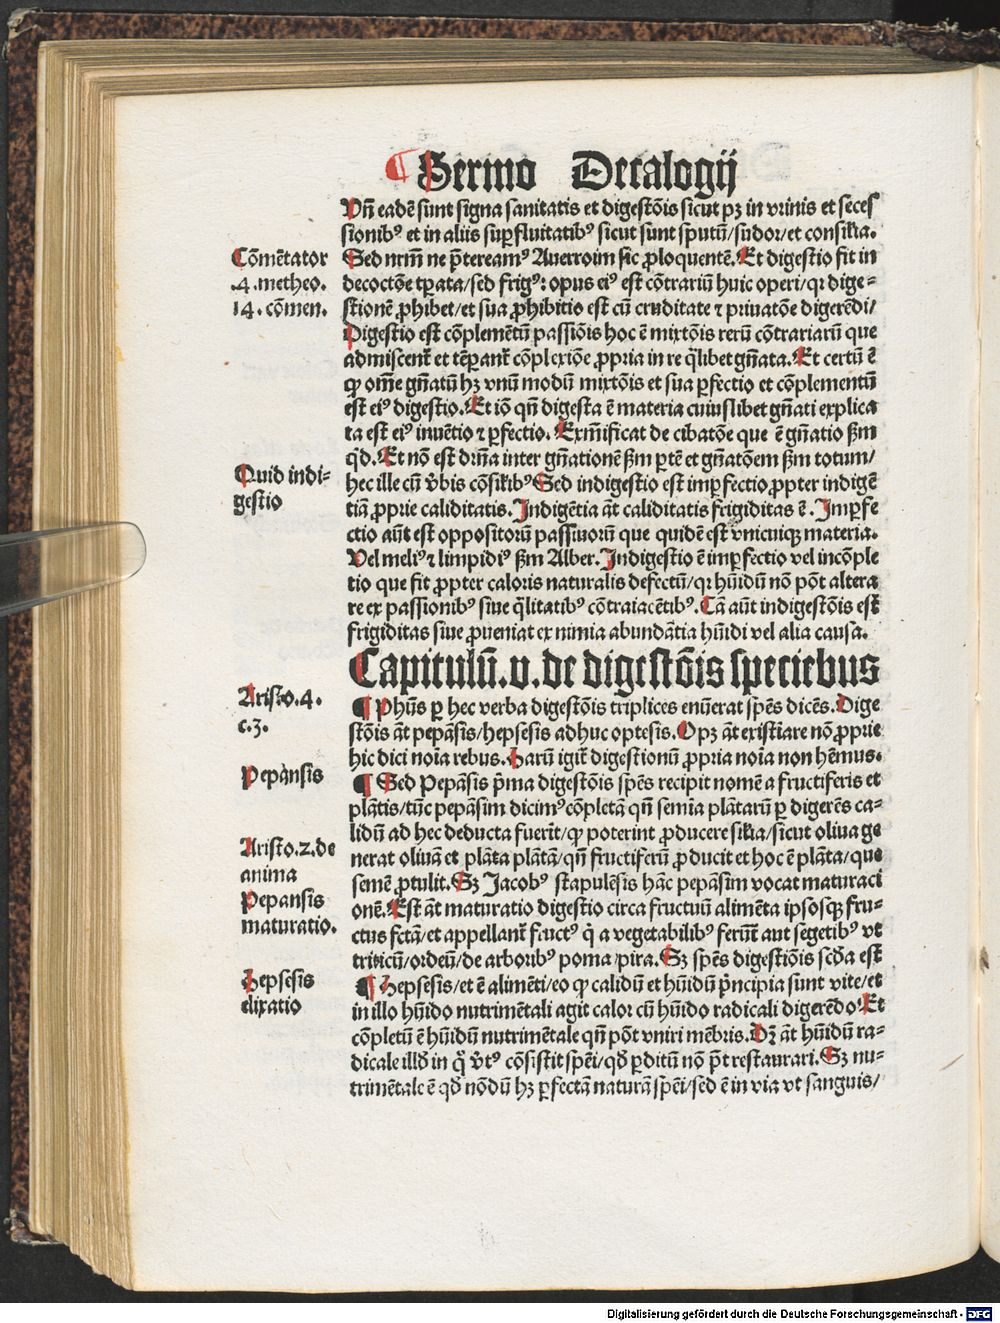 ¶ Sermo Decalogij
Vñ eadē sunt signa sanitatis et digestōis sicut pꝫ in vrinis et seces
sionibꝰ et in aliis suꝑfluitatibꝰ sicut sunt sputū/sudor/et consilia.
Cōmētator
.4.metheo.
14.cōmen.
Sed nr̄m ne p̄tereamꝰ Auerroim sic ꝓloquentē. Et digestio fit in
decoctōe tꝑata/sed frigꝰ: opus eiꝰ est cōtrariū huic operi/qꝛ dige-
stionē ꝓhibet/et sua ꝓhibitio est cū cruditate ⁊ priuatōe digerēdi/
Digestio est cōplemētū passiōis hoc ē mixtōis rerū cōtrariarū que
admiscent᷑ et tēꝑant᷑ cōplexiōe ꝓpria in re q̄libet gn̄ata. Et certū ē
ꝙ om̄e gn̄atū hꝫ vnū modū mixtōis et sua ꝑfectio et cōplementū
est eiꝰ digestio. Et iō qn̄ digesta ē materia cuiuslibet gn̄ati explica
ta est eiꝰ inuētio ⁊ ꝑfectio. Exm̄ificat de cibatōe que ē gn̄atio ẜm
q̄d. Et nō est dr̄na inter gn̄ationē ẜm ꝑtē et gn̄atōem ẜm totum/
Quid indi-
gestio
hec ille cū v̄bis cōsilibꝰ Sed indigestio est imꝑfectio ꝓpter indigē
tiā ꝓprie caliditatis. Indigētia āt caliditatis frigiditas ē. Imꝑfe
ctio aūt est oppositorū passiuorū que quidē est vnicuiqꝫ materia.
Vel meliꝰ ⁊ limpidiꝰ ẜm Alber. Indigestio ē imꝑfectio vel incōple
tio que fit ꝓpter caloris naturalis defectū/qꝛ hūidū nō pōt altera
re ex passionibꝰ siue q̄litatibꝰ cōtraiacētibꝰ. Cā aūt indigestōis est
frigiditas siue ꝓueniat ex nimia abundātia hūidi vel alia causa.
Capitulū.v.de digestōis speciebus
Aristo.4.
c.3.
¶ Phūs ꝑ hec verba digestōis triplices enūerat spēs dicēs. Dige
stōis āt pepāsis/hepsesis adhuc optesis. Opꝫ āt existīare nō ꝓprie
hic dici noīa rebus. Harū igit᷑ digestionū ꝓpria noīa non hēmus.
Pepānsis
¶ Sed Pepāsis p̄ma digestōis spēs recipit nomē a fructiferis et
plātis/tūc pepāsim dicimꝰ cōpletā qn̄ semīa plātarū ꝑ digerēs ca-
lidū ad hec deducta fuerīt/ꝙ poterint ꝓducere silia/sicut oliua ge
Aristo.2.de
anima
nerat oliuā et plāta plātā/qn̄ fructiferū ꝓducit et hoc ē plāta/que
Pepansis
maturatio.
semē ꝓtulit. Sꝫ Jacobꝰ stapulēsis hāc pepāsim vocat maturaci
onē. Est āt maturatio digestio circa fructuū alimēta ipsosqꝫ fru-
ctus fctā/et appellant᷑ fructꝰ q̄ a vegetabilibꝰ ferūt᷑ aut segetibꝰ vt
triticū/ordeū/de arboribꝰ poma/pira. Sꝫ spēs digestiōis scd̄a est
Hepsesis
elixatio
¶ Hepsesis/et ē alimēti/eo ꝙ calidū et hūidū p̄ncipia sunt vite/et
in illo hūido nutrimētali agit calor cū hūido radicali digerēdo Et
cōpletū ē hūidū nutrimētale qn̄ pōt vniri mēbris. Dꝛ āt hūidū ra-
dicale illd̄ in q̄ v̄tꝰ cōsistit spēi/qd̄ ꝑditū nō p̄t restaurari. Sꝫ nu-
trimētale ē qd̄ nōdū hꝫ ꝑfectā naturā spēi/sed ē in via vt sanguis/
Digitalisierung gefördert durch die Deutsche Forschungsgemeinschaft - DFG